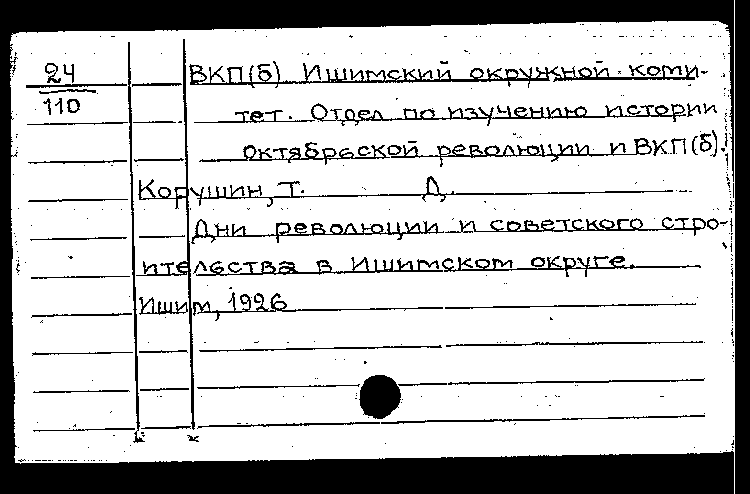 24 ВКП(б) Ишимский окружной коми-
110 тет. Отдел по изучению истории
Октябрьской революции и ВКП(б).
Корушин, Т. Д.
Дни революции и советского стро-
ительства в Ишимском округе.
Ишим, 1926